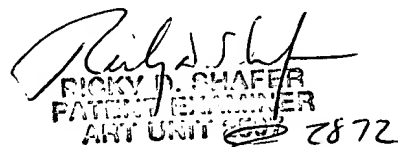 RICKY D. SHAFER
PATENT EXAMINER
ART UNIT 2872